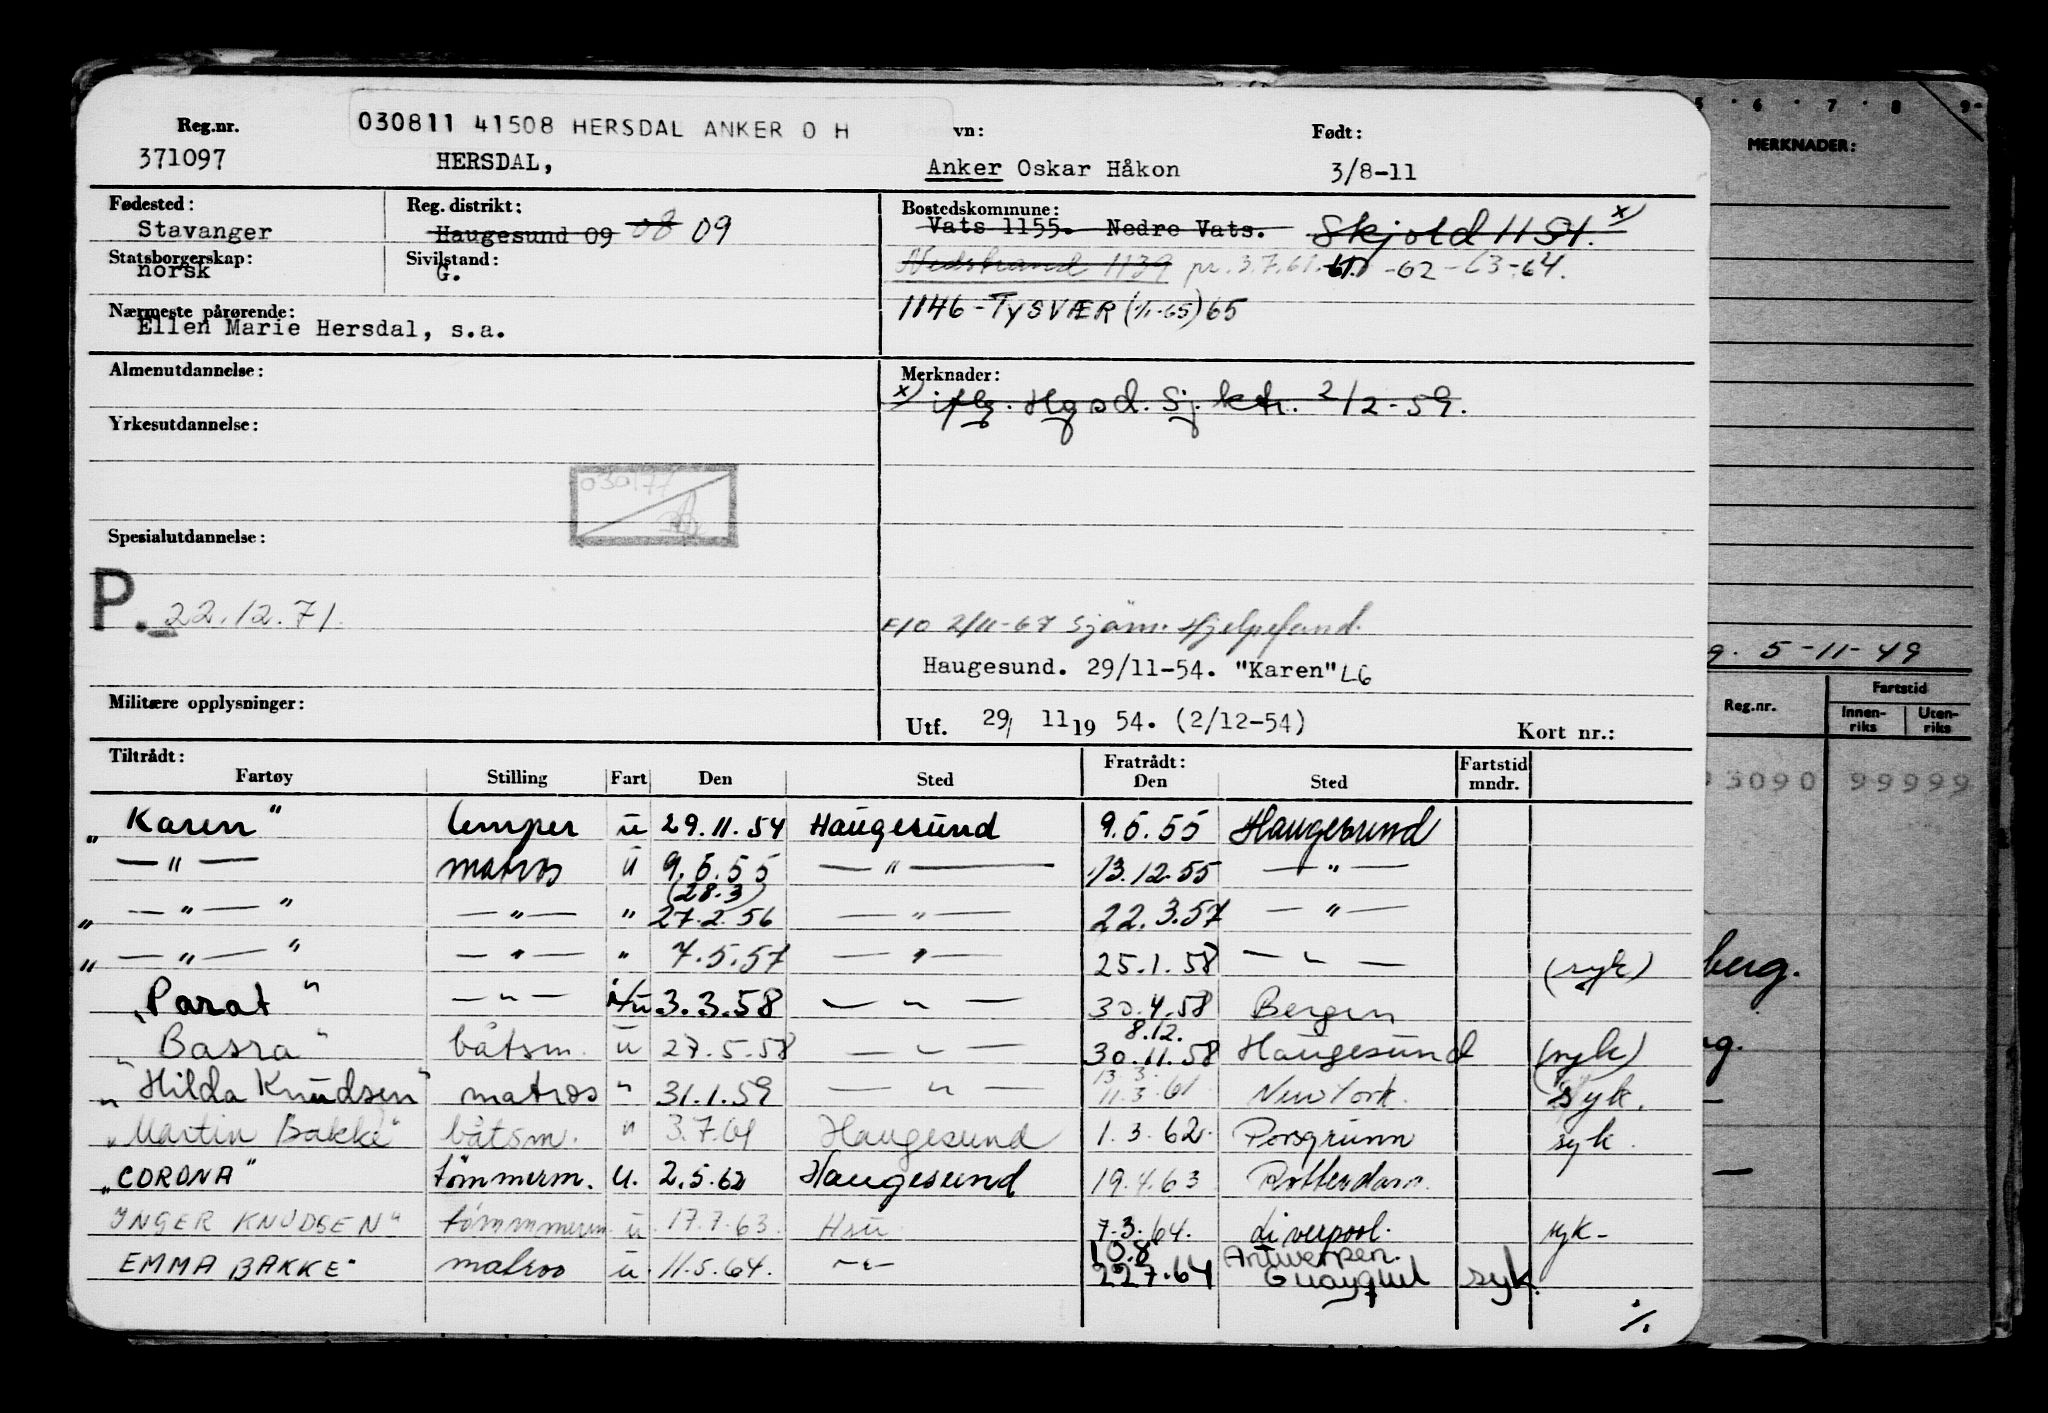 Reg.nr. 030811 41508 HERSDAL ANKER O H vn: Født:
371097 HERSDAL, Anker Oskar Håkon 3/8-11
Fødested: Reg. distrikt: Bostedskommune:
Stavanger Haugesund 09 08 09 Vats 1155. Nedre Vats. Skjold 1154. x)
Statsborgerskap: Sivilstand: Nedstrand 1139 pr. 3.7.61. -62-63-64.
norsk G.
Nærmeste pårørende: 1146 - TYSVÆR (1/1-65) 65
Ellen Marie Hersdal, s.a.
Almenutdannelse: Merknader:
x) iflg. Hgsd. Sj. ktr. 2/2-59.
Yrkesutdannelse:
Spesialutdannelse:
P. 22.12.71.
2/11-67 Sjøm. Hjelpefond.
Haugesund. 29/11-54. "Karen" LG
Militære opplysninger:
Utf. 29/ 11 19 54. (2/12-54) Kort nr.:
Tiltrådt: Fratrådt: Fartstid
Fartøy Stilling Fart Den Sted Den Sted mndr.
"Karen" lemper u 29.11.54 Haugesund 9.5.55 Haugesund
— " — matros u 9.5.55 — " — 13.12.55 — " —
(28.3)
" — " — " — " — " 27.2.56 — " — 22.3.57 — " —
" — " — " — " — " 7.5.57 — " — 25.1.58 — " — (syk)
"Parat" — " — i/u 3.3.58 — " — 30.4.58 Bergen
8.12.
"Basra" båtsm. u 27.5.58 — " — 30.11.58 Haugesund (syk)
13.3.
"Hilda Knudsen" matros " 31.1.59 — " — 11.3.61 New York. Syk.
"Martin Bakke" båtsm. " 3.7.61 Haugesund 1.3.62. Porsgrunn syk.
"CORONA" tömmerm. u. 2.5.62 Haugesund 19.4.63 Rotterdam.
INGER KNUDSEN" tömmerm u. 17.7.63. Hsu 7.3.64. Liverpool. syk-
10.8 Antwerpen.
EMMA BAKKE" matros u. 11.5.64. — " — 22.7.64 Guayquil syk.
%
5 · 6 · 7 · 8 · 9
MERKNADER:
g. 5-11-49
Reg.nr. Fartstid
Innen-riks Uten-riks
3090 99999
berg.